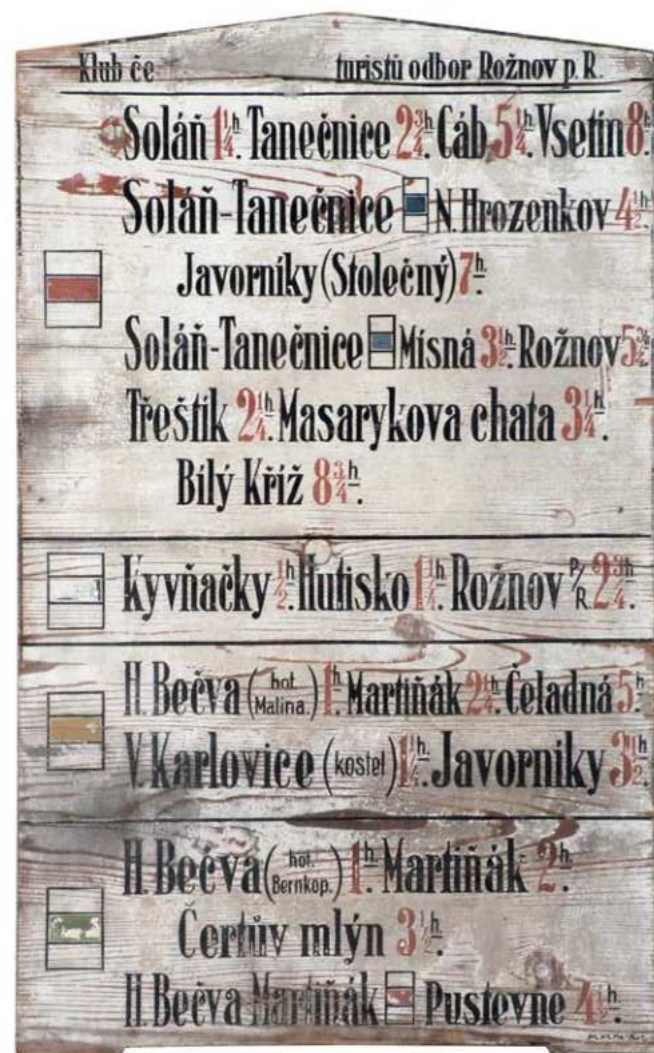 Klub če turistů odbor Rožnov p. R.
Soláň 1 1/4 h. Tanečnice 2 3/4 h. Cáb 5 1/4 h. Vsetín 8 h.
Soláň-Tanečnice N. Hrozenkov 4 1/2 h.
Javorníky (Stolečný) 7 h.
Soláň-Tanečnice Mísná 3 1/2 h. Rožnov 5 3/4 h
Třeštík 2 1/4 h. Masarykova chata 3 1/4 h.
Bílý Kříž 8 3/4 h.
Kyvňačky 1/2 h. Hutisko 1 1/4 h. Rožnov p/R. 2 3/4 h.
H. Bečva (hot. Malina.) 1 h. Martiňák 2 1/4 h. Čeladná 5 h.
V. Karlovice (kostel) 1 1/4 h. Javorniky 3 1/2 h.
H. Bečva (hot. Bernkop.) 1 h. Martiňák 2 h.
Čertův mlýn 3 1/2 h.
H. Bečva Martiňák Pustevne 4 1/2 h.